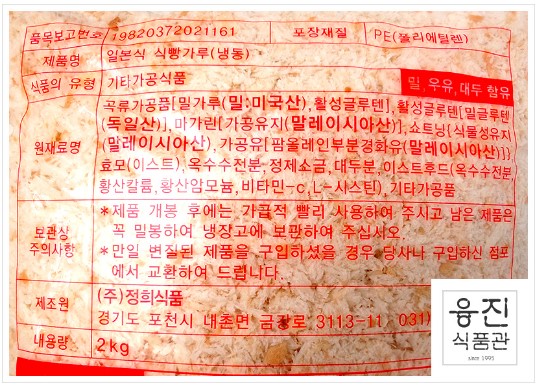 품목보고번호 19820372021161 포장재질 PE(폴리에틸렌)
제품명 일본식 식빵가루(냉동)
식품의 유형 기타가공식품 밀, 우유, 대두 함유
원재료명
곡류가공품[밀가루(밀:미국산), 활성글루텐], 활성글루텐[밀글루텐
(독일산)], 마가린[가공유지(말레이시아산)], 쇼트닝{식물성유지
(말레이시아산), 가공유[팜올레인부분경화유(말레이시아산)]},
효모(이스트), 옥수수전분, 정제소금, 대두분, 이스트푸드(옥수수전분,
황산칼륨, 황산암모늄, 비타민-c, L-시스틴), 기타가공품
보관상
주의사항
*제품 개봉 후에는 가급적 빨리 사용하여 주시고 남은 제품은
꼭 밀봉하여 냉장고에 보관하여 주십시오.
*만일 변질된 제품을 구입하셨을 경우 당사나 구입하신 점포
에서 교환하여 드립니다.
제조원 (주)정희식품
경기도 포천시 내촌면 금강로 3113-11 031)
내용량 2kg
웅진
식품관
since 1995